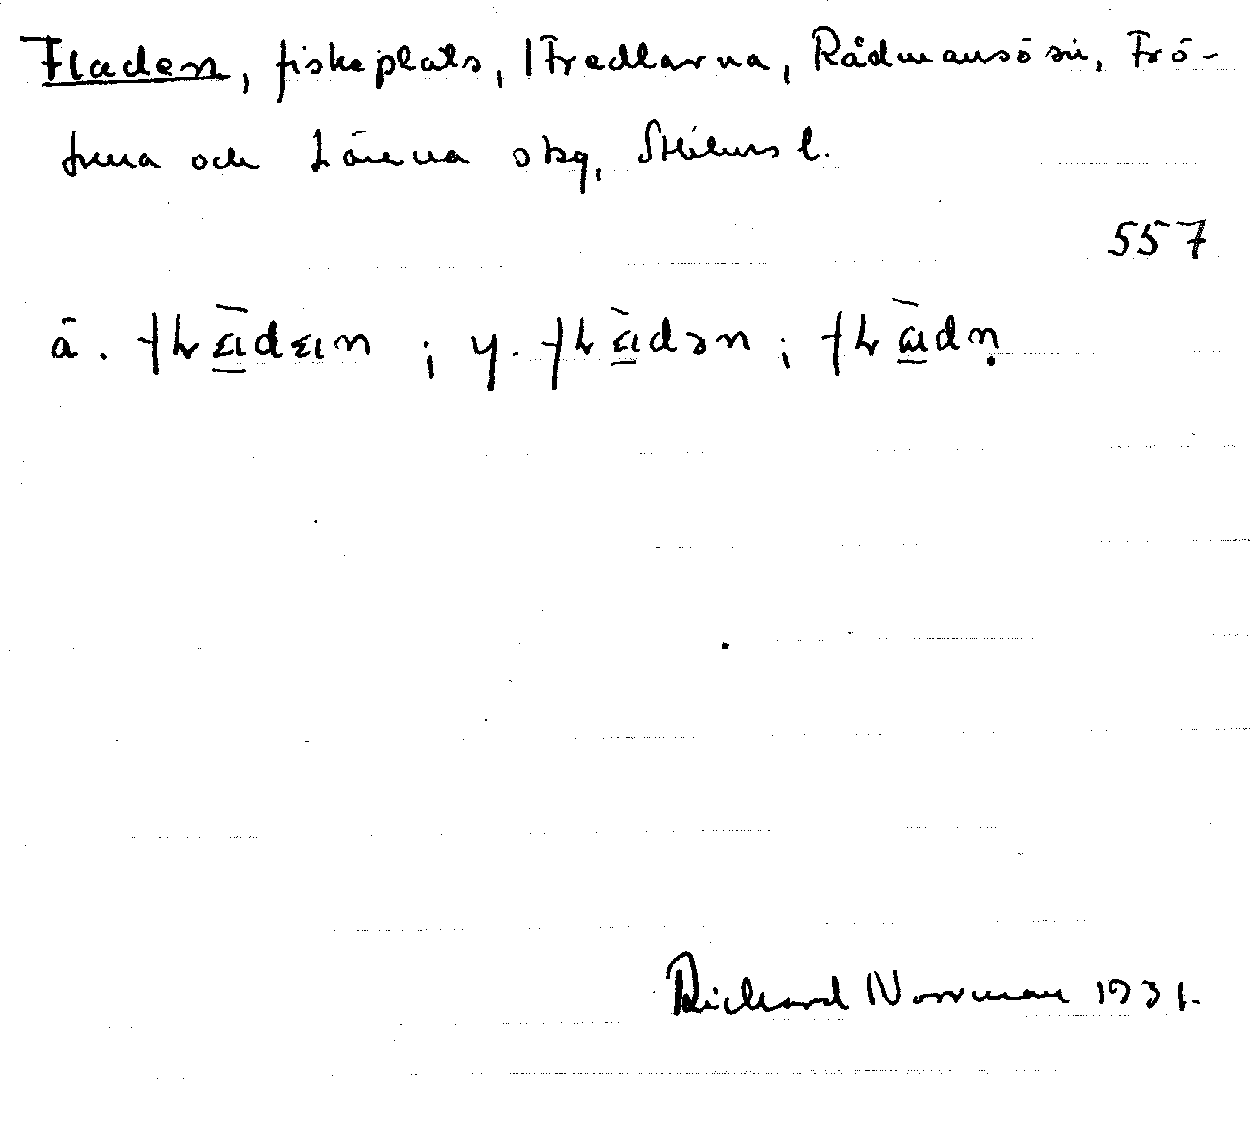 Fladen, fiskeplats, Fredlarna, Rådmansö sn, Frö-
tuna och Länna skg, Sthlms l.
557
ä. ; y. ;
Richard Norrman 1931.